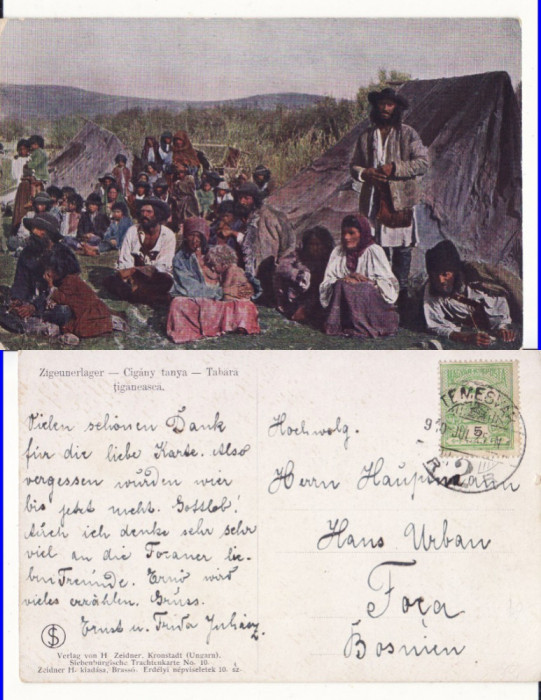 Zigeunerlager — Cigány tanya — Tabără
țigănească.
Vielen schönen Dank
für die liebe Karte. Also
vergessen wurden wir
bis jetzt nicht. Gottlob!
Auch ich denke sehr sehr
viel an die Focaner lie-
ben Freunde. Ernő wird
vieles erzählen. Gruss.
Ernst u. Frida Juhász.
S
Verlag von H. Zeidner, Kronstadt (Ungarn).
Siebenburgische Trachtenkarte No. 10.
Zeidner H. kiadása, Brassó. Erdélyi népviseletek 10. sz.
MAGYAR KIR. POSTA
TEMESVÁR
5
910 JUL.
Hochwolg.
Herrn Hauptmann
Hans Urban
Foča
Bosnien